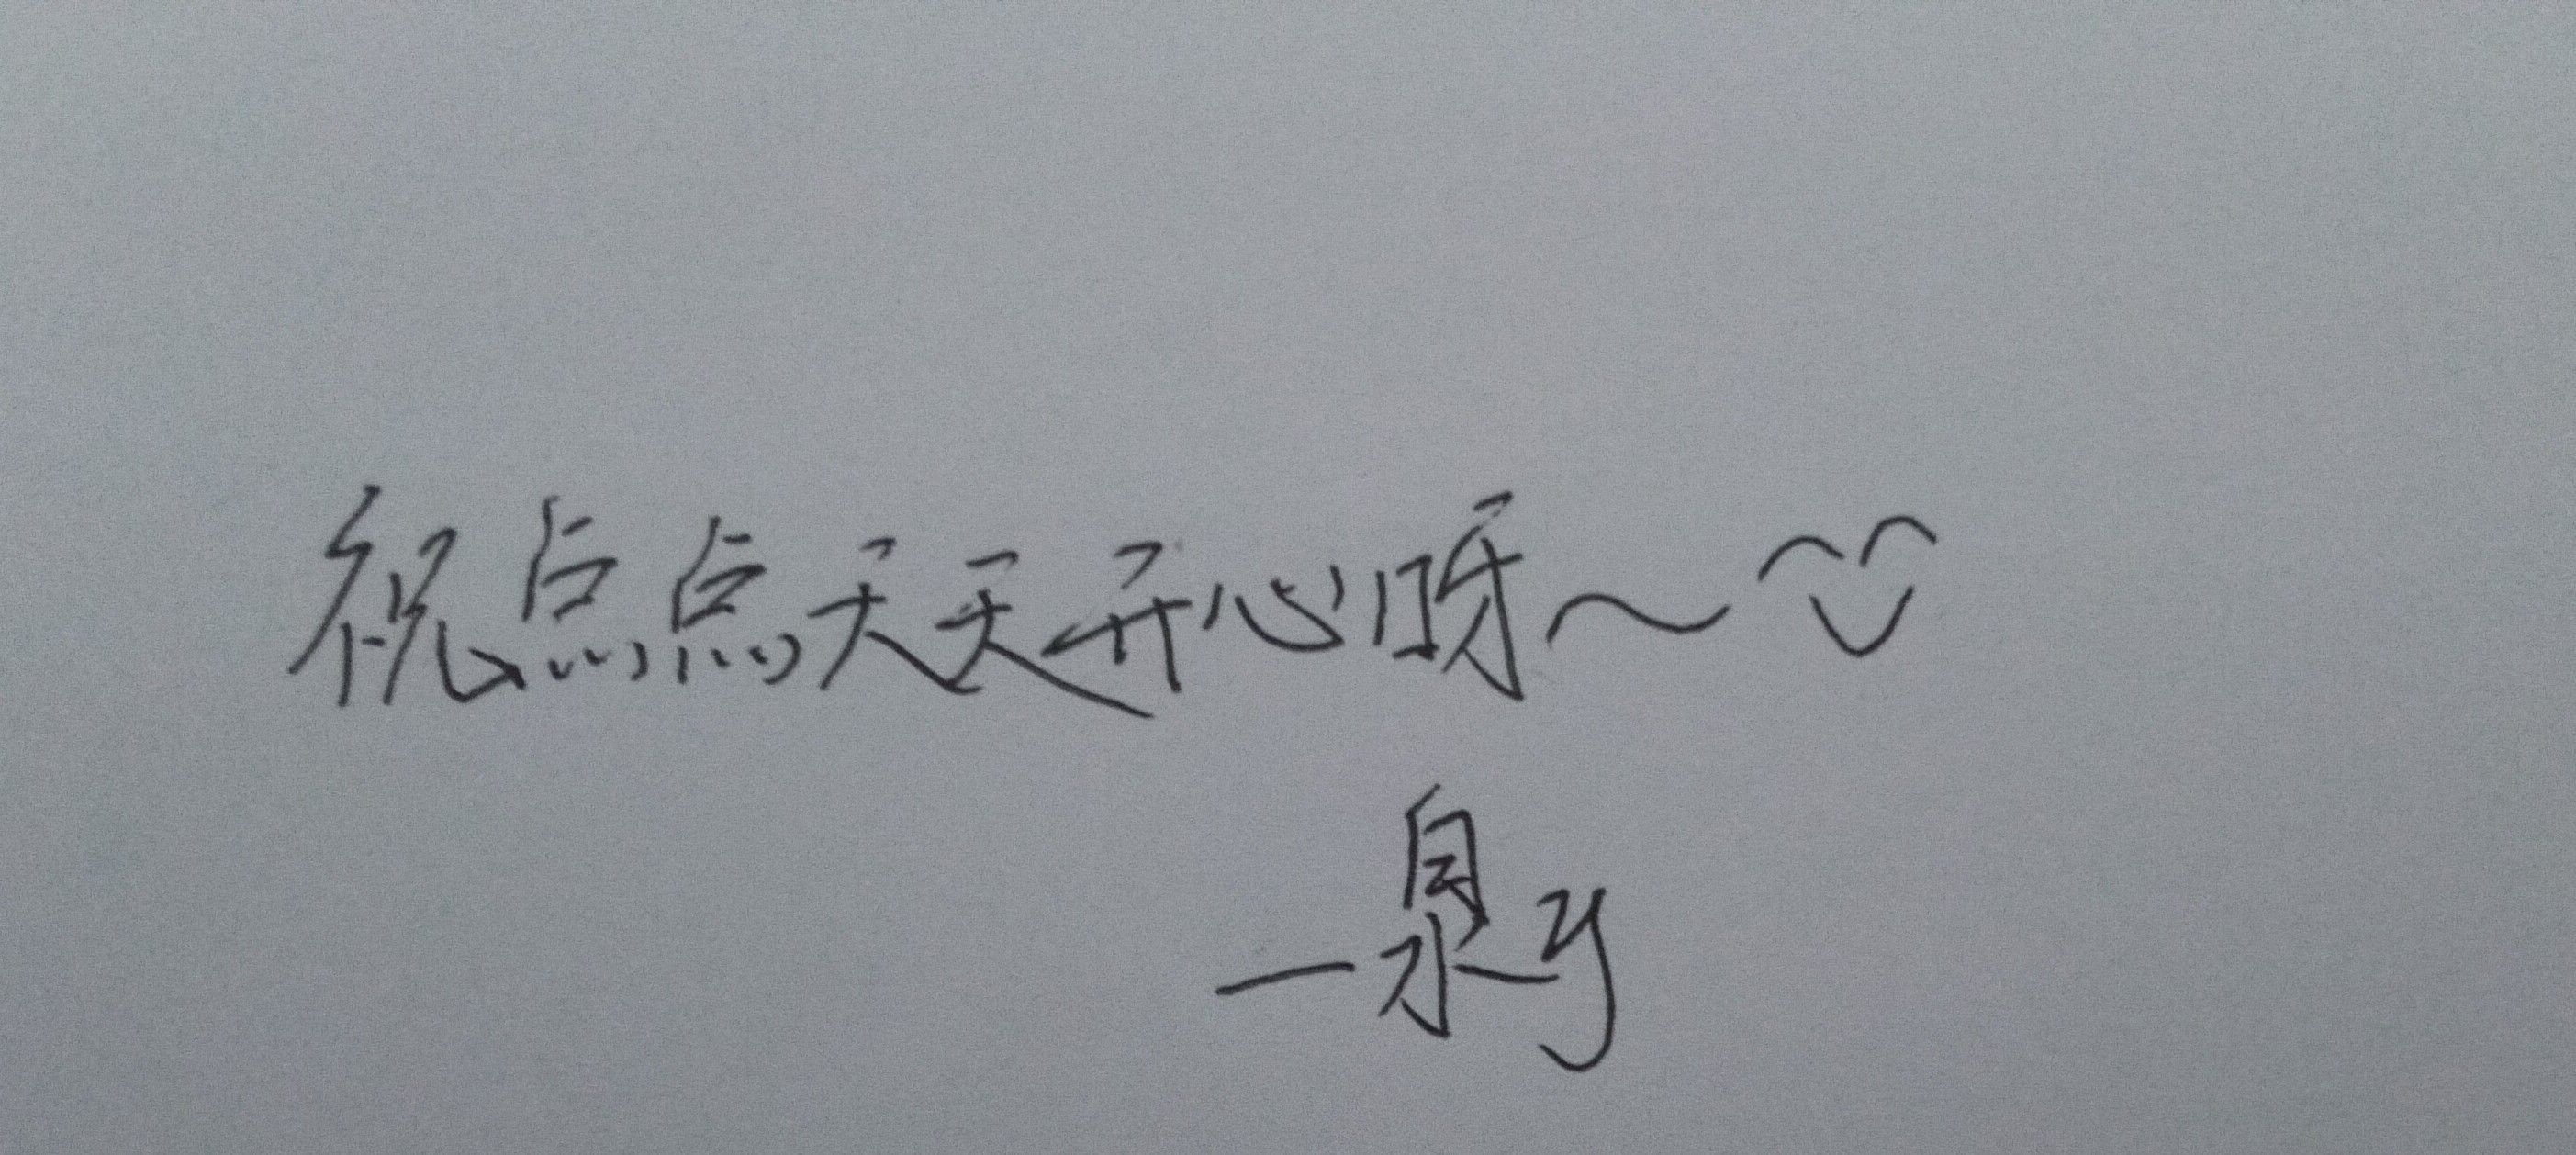 祝点点天天开心呀～
一泉y